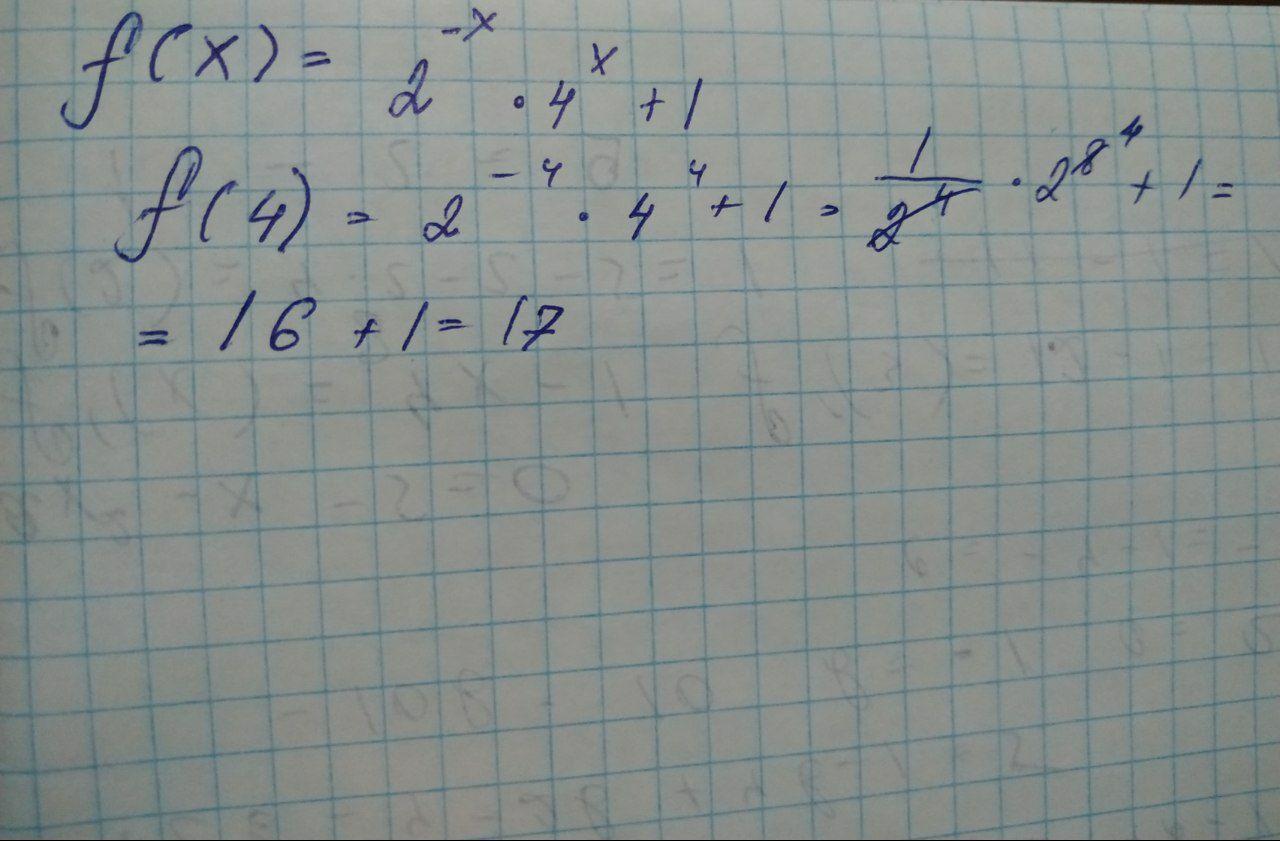 f(x) = 2^-x · 4^x + 1
f(4) = 2^-4 · 4^4 + 1 = 1/2^4 · 2^8^4 + 1 =
= 16 + 1 = 17